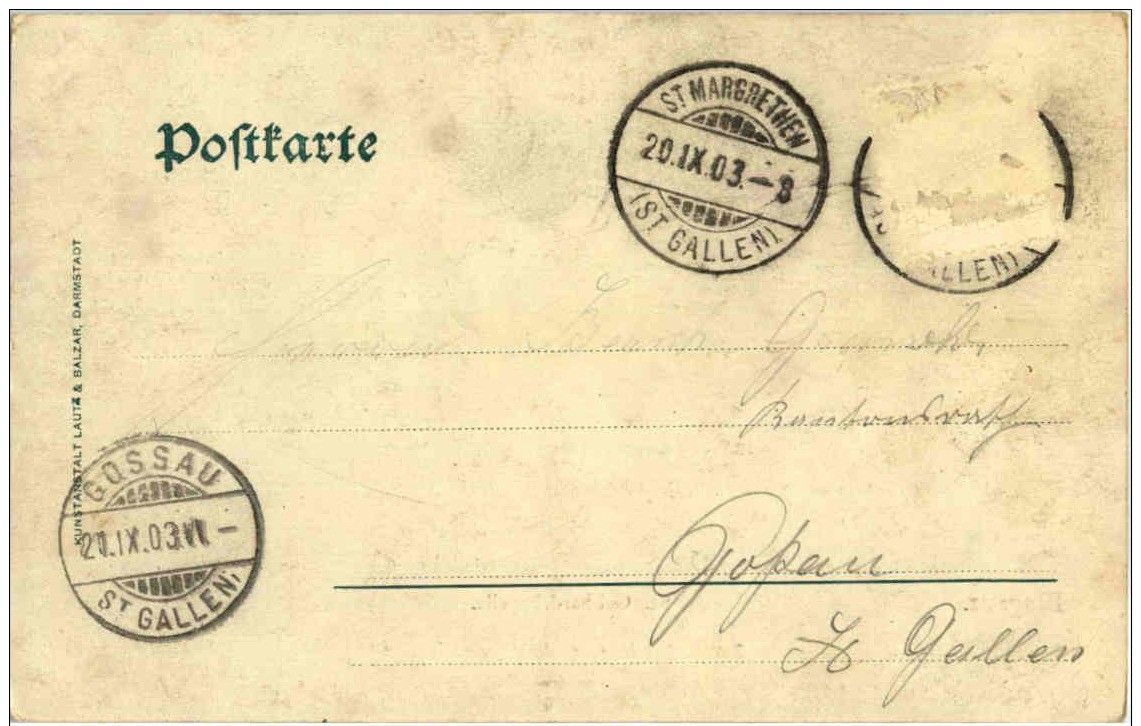 Postkarte
ST MARGRETHEN
20.IX.03.–8
(ST GALLEN).
ALLEN)
KUNSTANSTALT LAUTZ & BALZAR, DARMSTADT
Kantonsrath
GOSSAU
IX.03.VI.–
(ST GALLEN)
Goßau
St Gallen